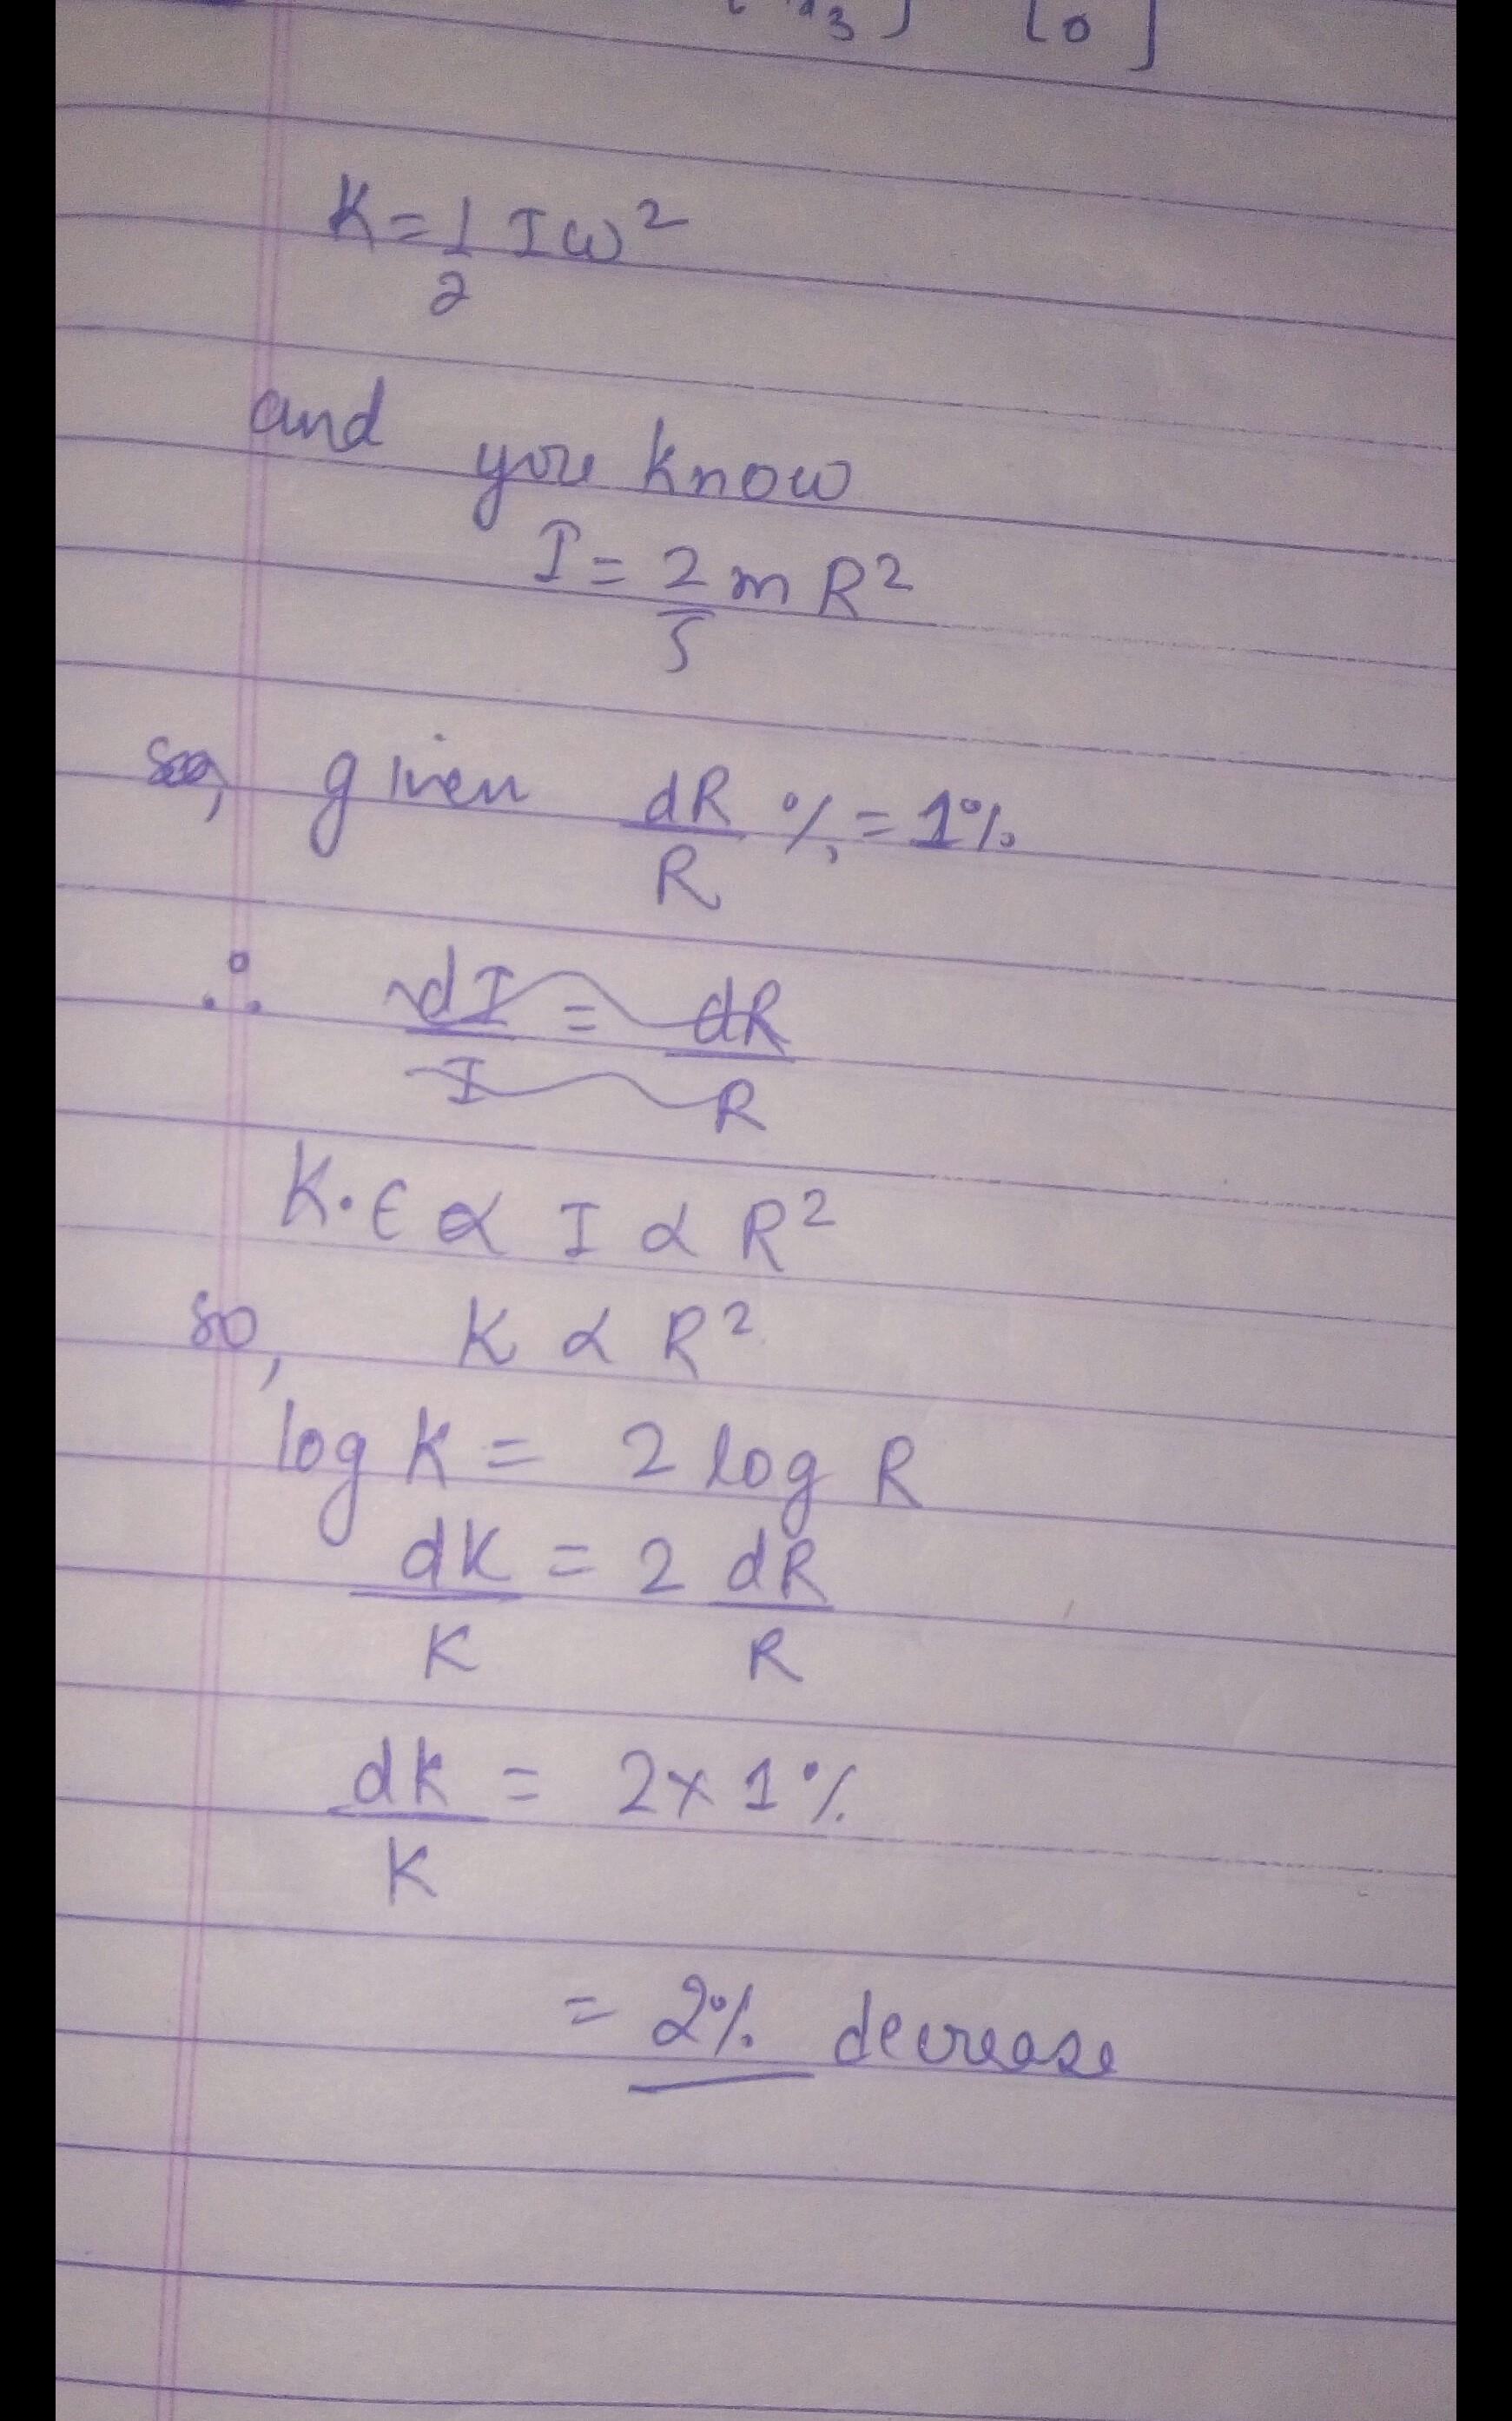 3 ] [ 0 ]
K = 1/2 Iω²
and you know
I = 2/5 m R²
so, given dR/R % = 1%
∴ dI/I = dR/R
K.E α I α R²
so, K α R²
log K = 2 log R
dK/K = 2 dR/R
dK/K = 2 x 1%
= 2% decrease